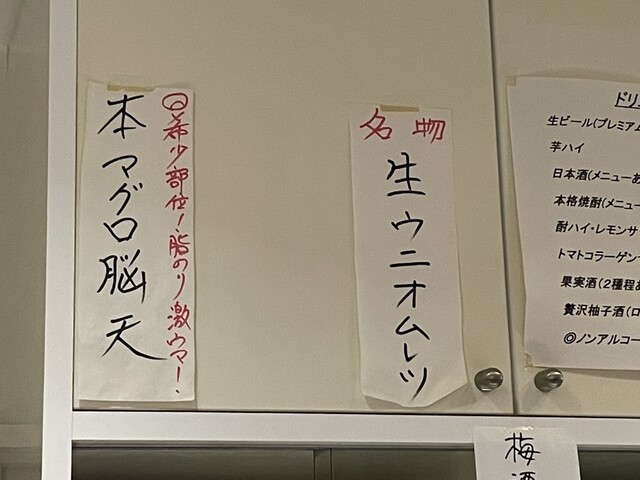 ◎希少部位!脂のり激ウマ!
本マグロ脳天
名物
生ウニオムレツ
ドリ
生ビール(プレミアム
芋ハイ
日本酒(メニューあ
本格焼酎(メニュー
酎ハイ・レモンサ
トマトコラーゲン
果実酒(2種程あ
贅沢柚子酒(ロ
◎ノンアルコー
梅酒